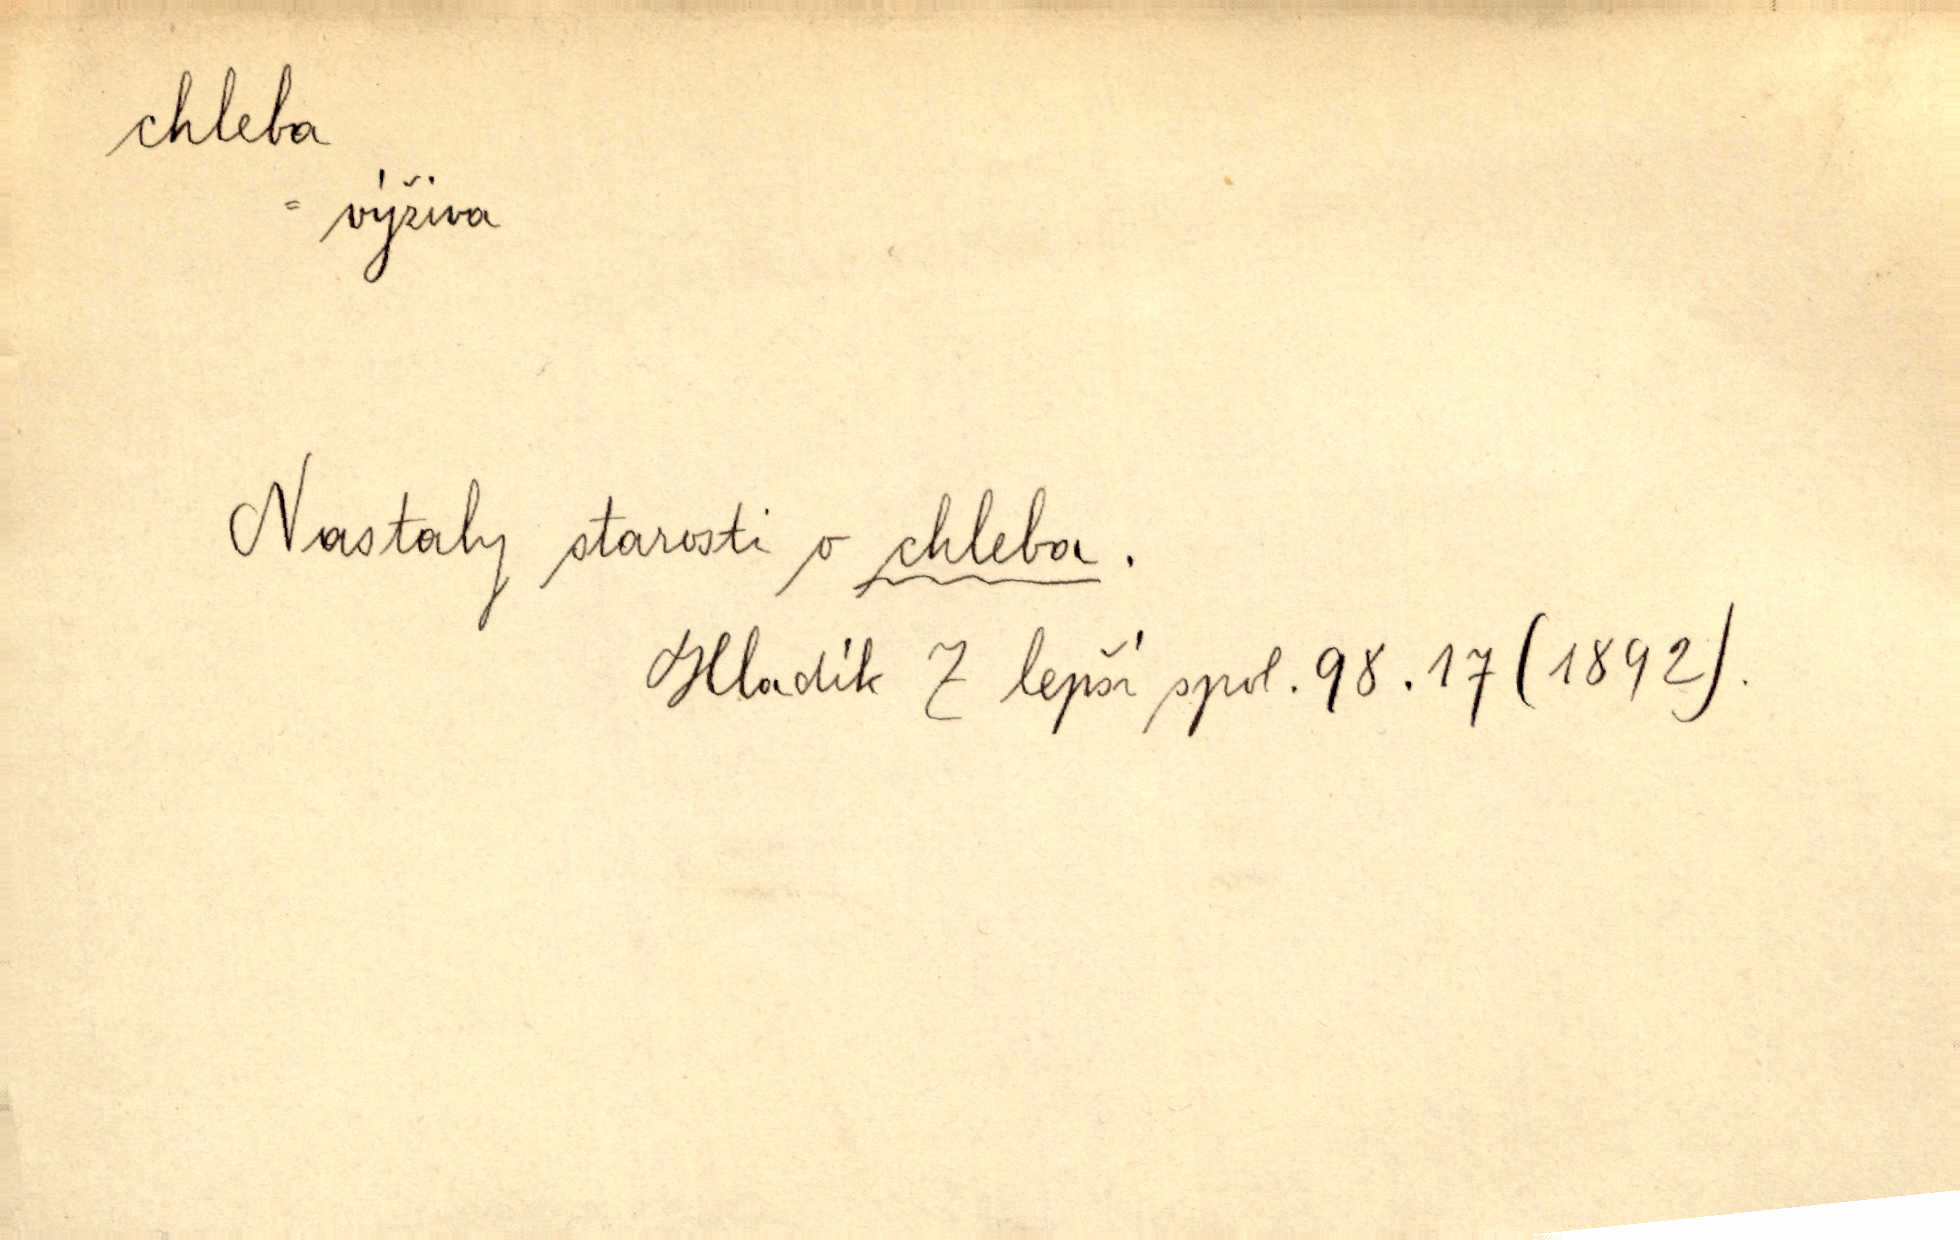 chleba
= výživa
Nastaly starosti o chleba.
Hladík Z lepší spol. 98.17 (1892).